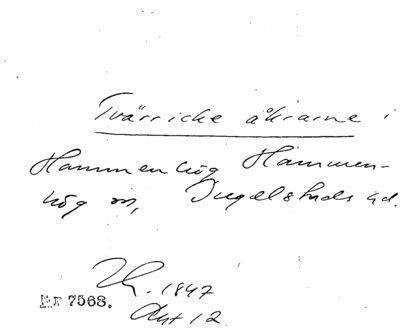 Tvärricke åkrarne i
Hammenhög Hammen-
hög sn, Ingelstads hd.
Lh. 1847
Akt 12
Nr 7568.